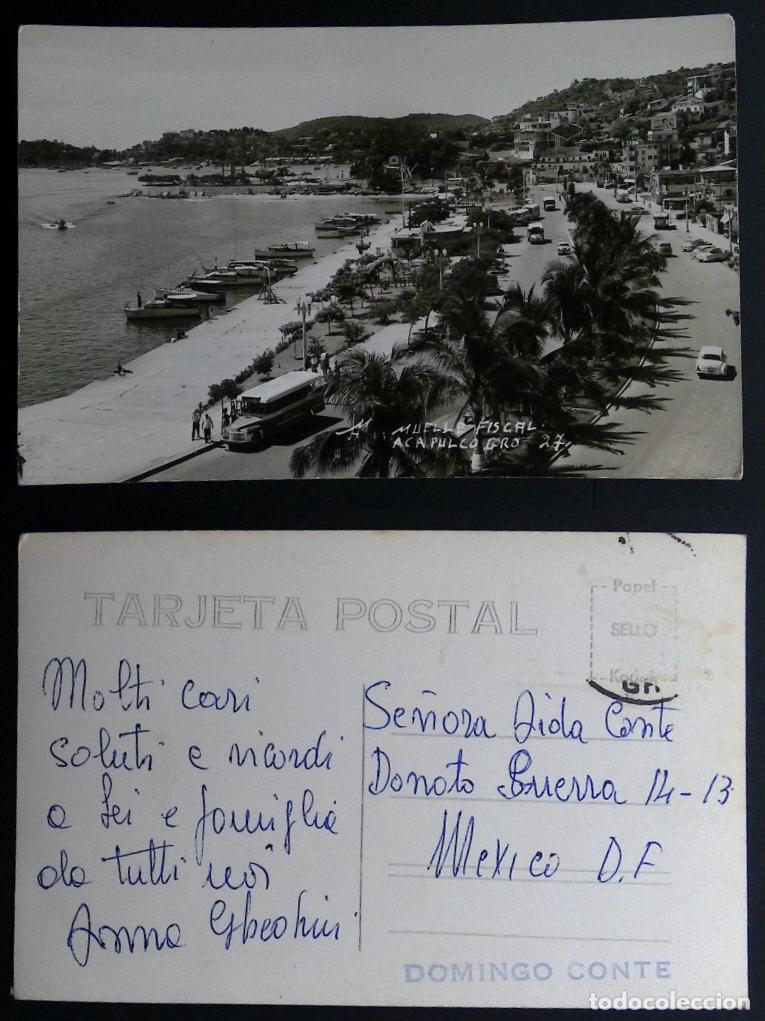 MUELLE FISCAL
ACAPULCO GRO 27
TARJETA POSTAL
Papel
SELLO
Kodak
Molti cari
saluti e ricordi
a Lei e famiglia
da tutti noi
Anna
Señora Aida Conte
Donato Guerra 14-13
Mexico D.F
DOMINGO CONTE
todocoleccion